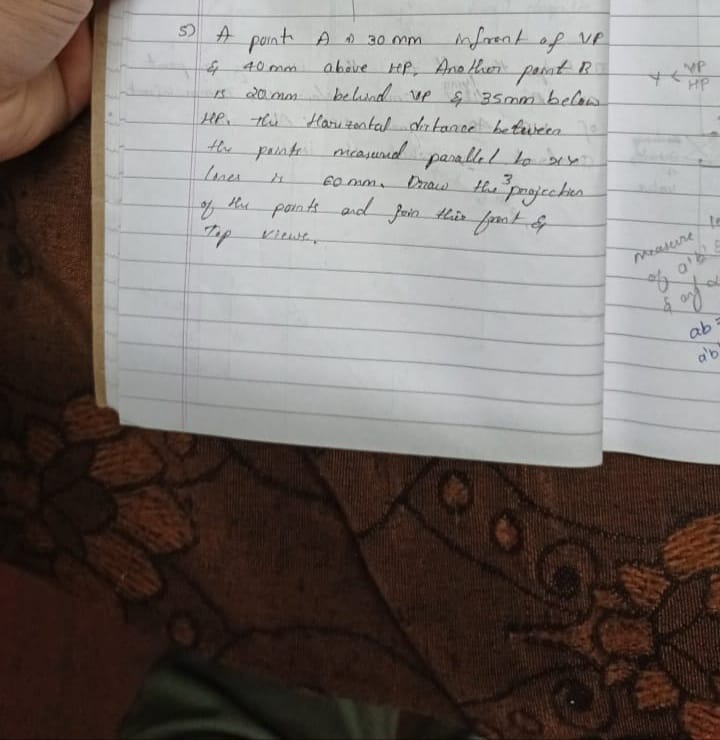 5) A point A is 30 mm infront of VP
& 40mm above HP. Another point B
is 20mm behind VP & 35mm below
HP. the Horizontal distance between
the points measured parallel to xy
lines is 60 mm. Draw the 3 projection
of the points and join their front &
Top views.
VP
HP
measure
of a'b'
&
ab =
a'b'